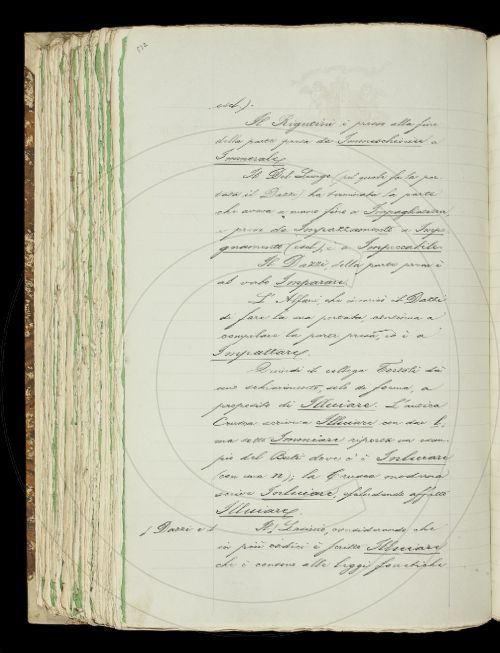 572
escl.).
Il Rigutini è presso alla fine
della parte presa da Immeschinire a
Immorale.
Il Del Lungo (pel quale fa la por-
tata il Dazzi) ha terminata la parte
che aveva a mano fino a Impagliatura
e prese da Impazzamento a Imp
gnamento (escl.), è a Impeccabile.
Il Dazzi, della parte presa è
al verbo Imparare.
L'Alfani, che in unione al Dazzi
di fare la sua portata continua a
compilare la parte presa, ed è a
Impattare.
Quindi il collega Tortoli dà
uno schiarimento, solo di forma, a
proposito di Illuiare. L'antica
Crusca scriveva Illuiare con due l,
ma sotto Immiare riporta un esem-
pio del Buti dove c'è Inluiare
(con una n); la Crusca moderna
scrive Inluiare, escludendo affatto
Illuiare.
Dazzi e il
Il considerando che
in più codici è scritto Illuiare
che è consono alle leggi fonetiche